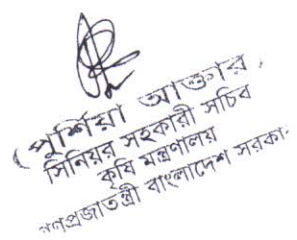 (পুর্শিয়া আক্তার)
সিনিয়র সহকারী সচিব
কৃষি মন্ত্রণালয়
গণপ্রজাতন্ত্রী বাংলাদেশ সরকা